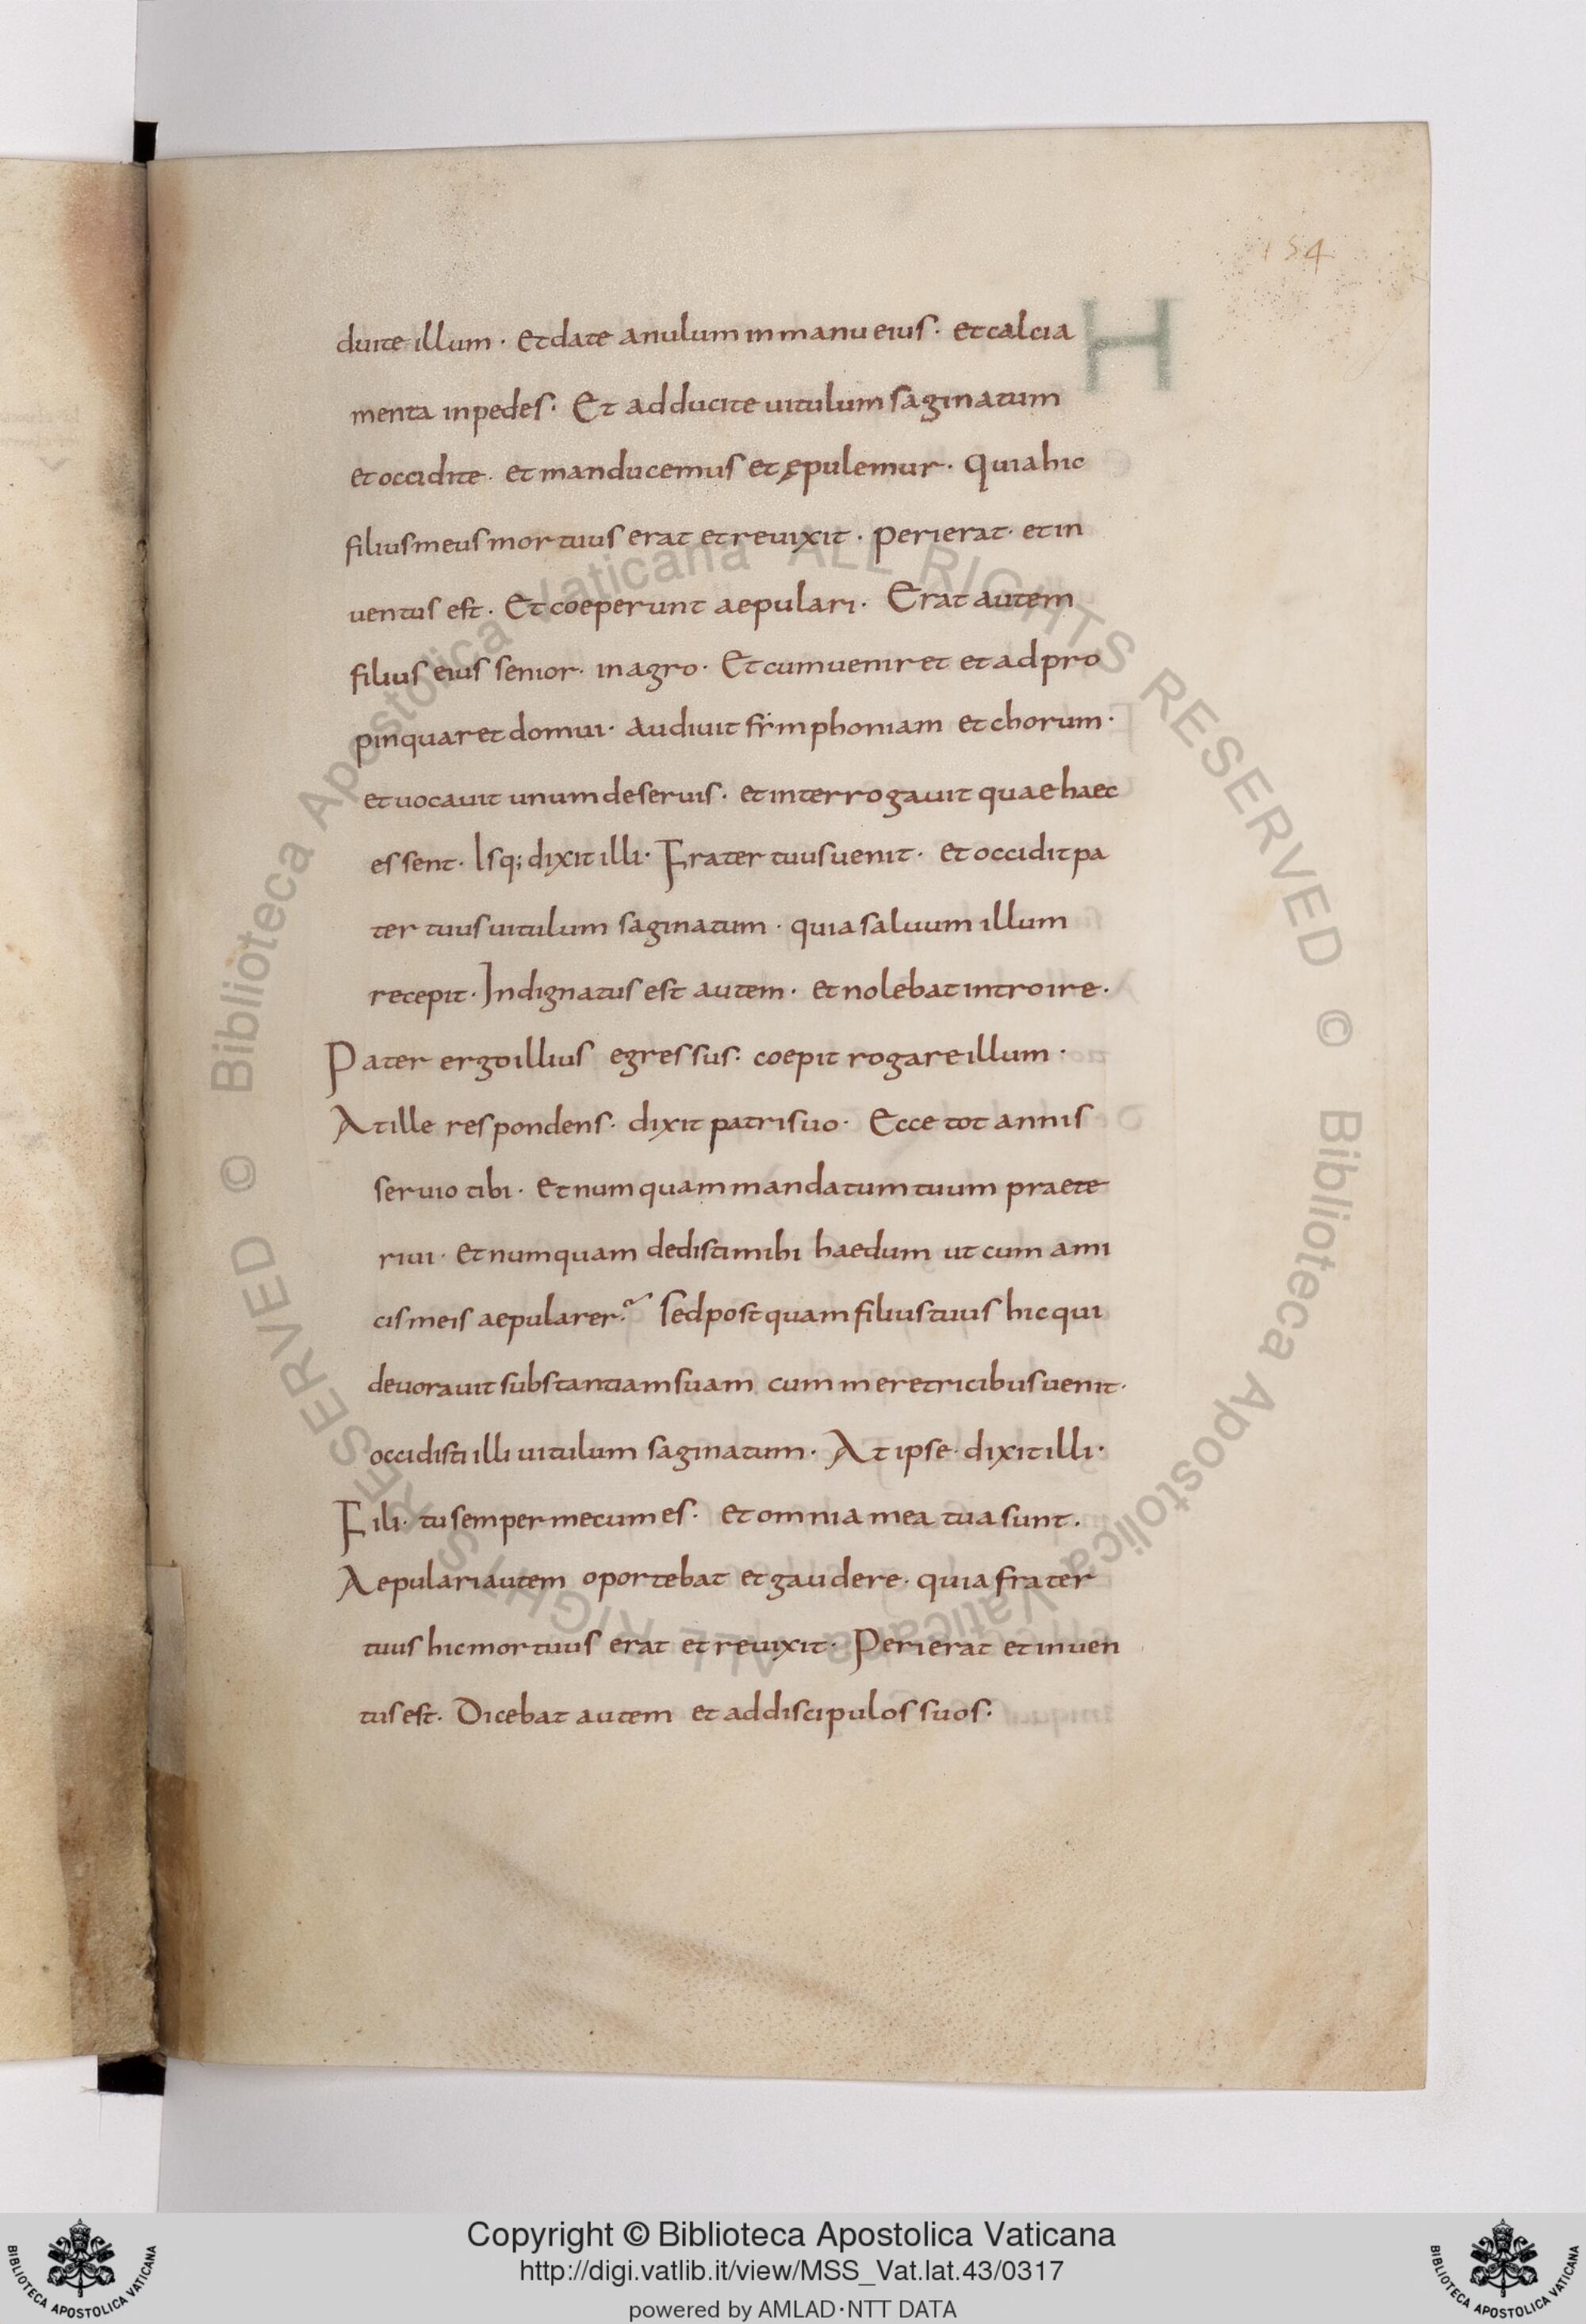 154
duite illum · Et date anulum in manu eius · et calcia
menta in pedes · Et adducite uitulum saginatum
et occidite · et manducemus et ępulemur · Quia hic
filius meus mortuus erat et reuixit · perierat · et in
uentus est · Et coeperunt aepulari · Erat autem
filius eius senior · in agro · Et cum ueniret et adpro
pinquaret domui · audiuit simphoniam et chorum ·
et uocauit unum de seruis · et interrogauit quae haec
essent · Isq; dixit illi · Frater tuus uenit · et occidit pa
ter tuus uitulum saginatum · quia saluum illum
recepit · Indignatus est autem · et nolebat introire ·
Pater ergo illius egressus · coepit rogare illum ·
At ille respondens · dixit patri suo · Ecce tot annis
seruio tibi · et numquam mandatum tuum praete
riui · et numquam dedisti mihi haedum ut cum ami
cis meis aepularer · Sed postquam filius tuus hic qui
deuorauit substantiam suam cum meretricibus uenit ·
occidisti illi uitulum saginatum · At ipse dixit illi ·
Fili · tu semper mecum es · et omnia mea tua sunt ·
Aepulari autem oportebat et gaudere · quia frater
tuus hic mortuus erat et reuixit · Perierat et inuen
tus est · Dicebat autem et ad discipulos suos ·
H
© Biblioteca Apostolica Vaticana ALL RIGHTS RESERVED
© Biblioteca Apostolica Vaticana ALL RIGHTS RESERVED
Copyright © Biblioteca Apostolica Vaticana
http://digi.vatlib.it/view/MSS_Vat.lat.43/0317
powered by AMLAD·NTT DATA
BIBLIOTECA APOSTOLICA VATICANA
BIBLIOTECA APOSTOLICA VATICANA